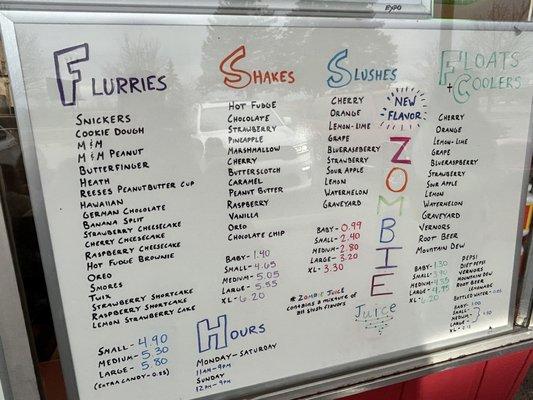 EXPO
FLURRIES
SNICKERS
COOKIE DOUGH
M&M
M&M PEANUT
BUTTERFINGER
HEATH
REESES PEANUTBUTTER CUP
HAWAIIAN
GERMAN CHOCOLATE
BANANA SPLIT
STRAWBERRY CHEESECAKE
CHERRY CHEESECAKE
RASPBERRY CHEESECAKE
HOT FUDGE BROWNIE
OREO
SMORES
TWIX
STRAWBERRY SHORTCAKE
RASPBERRY SHORTCAKE
LEMON STRAWBERRY CAKE
SMALL- 4.90
MEDIUM- 5.30
LARGE- 5.80
SHAKES
HOT FUDGE
CHOCOLATE
STRAWBERRY
PINEAPPLE
MARSHMALLOW
CHERRY
BUTTERSCOTCH
CARAMEL
PEANUT BUTTER
RASPBERRY
VANILLA
OREO
CHOCOLATE CHIP
BABY- 1.40
SMALL- 4.65
MEDIUM- 5.05
LARGE- 5.55
XL- 6.20
HOURS
MONDAY- SATURDAY
11AM- 9PM
SUNDAY
12PM- 9PM
SLUSHES
CHERRY
ORANGE
LEMON-LIME
GRAPE
BLUERASPBERRY
STRAWBERRY
SOUR APPLE
LEMON
WATERMELON
GRAVEYARD
BABY- 0.99
SMALL- 2.40
MEDIUM- 2.80
LARGE- 3.20
XL- 3.30
* ZOMBIE JUICE
CONTAINS A MIXTURE OF
ALL SLUSH FLAVORS
NEW
FLAVOR
ZOMBIE
JUICE
FLOATS
+ COOLERS
CHERRY
ORANGE
LEMON-LIME
GRAPE
BLUERASPBERRY
STRAWBERRY
SOUR APPLE
LEMON
WATERMELON
GRAVEYARD
VERNORS
ROOT BEER
MOUNTAIN DEW
BABY- 1.30
SMALL- 3.90
MEDIUM- 4.35
LARGE- 4.95
XL- 6.20
PEPSI
DIET PEPSI
VERNORS
MOUNTAIN DEW
ROOT BEER
LEMONADE
BOTTLED WATER-
BABY-
SMALL-
MEDIUM-
LARGE-
XL-